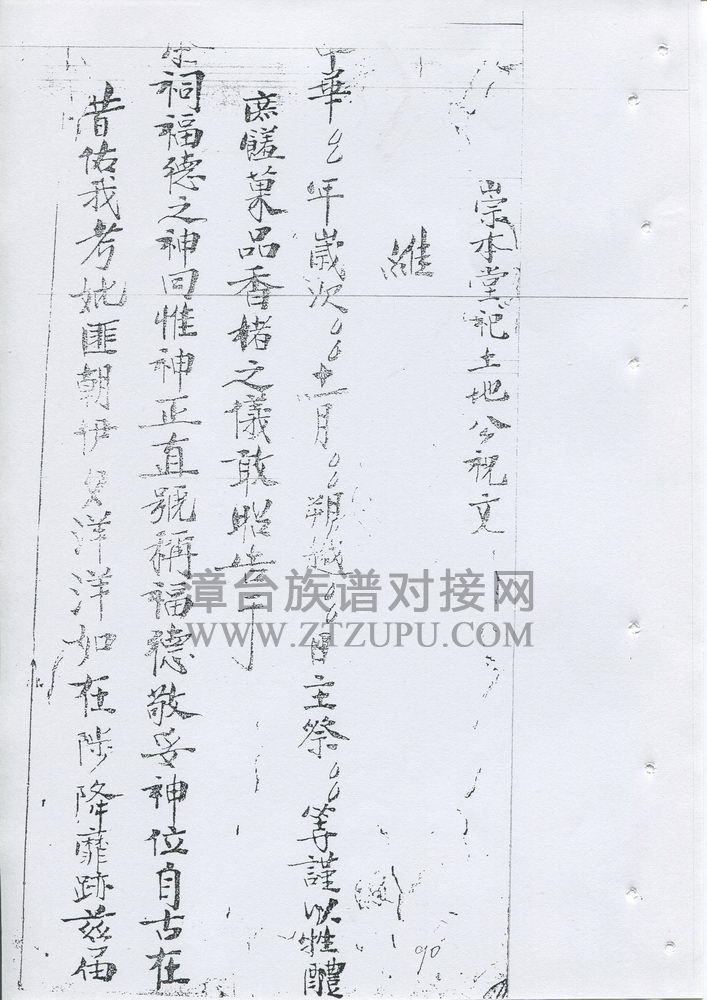 崇本堂祀土地公祝文
維
中華〇年歲次〇〇十一月〇〇朔越〇〇日主祭〇〇等謹以牲醴
庶饈菓品香楮之儀敢昭告于
祠福德之神曰惟神正直號稱福德敬妥神位自古在
昔佑我考妣匪朝伊夕洋洋如在陟降靡跡茲屆
90
漳台族谱对接网
WWW.ZTZUPU.COM